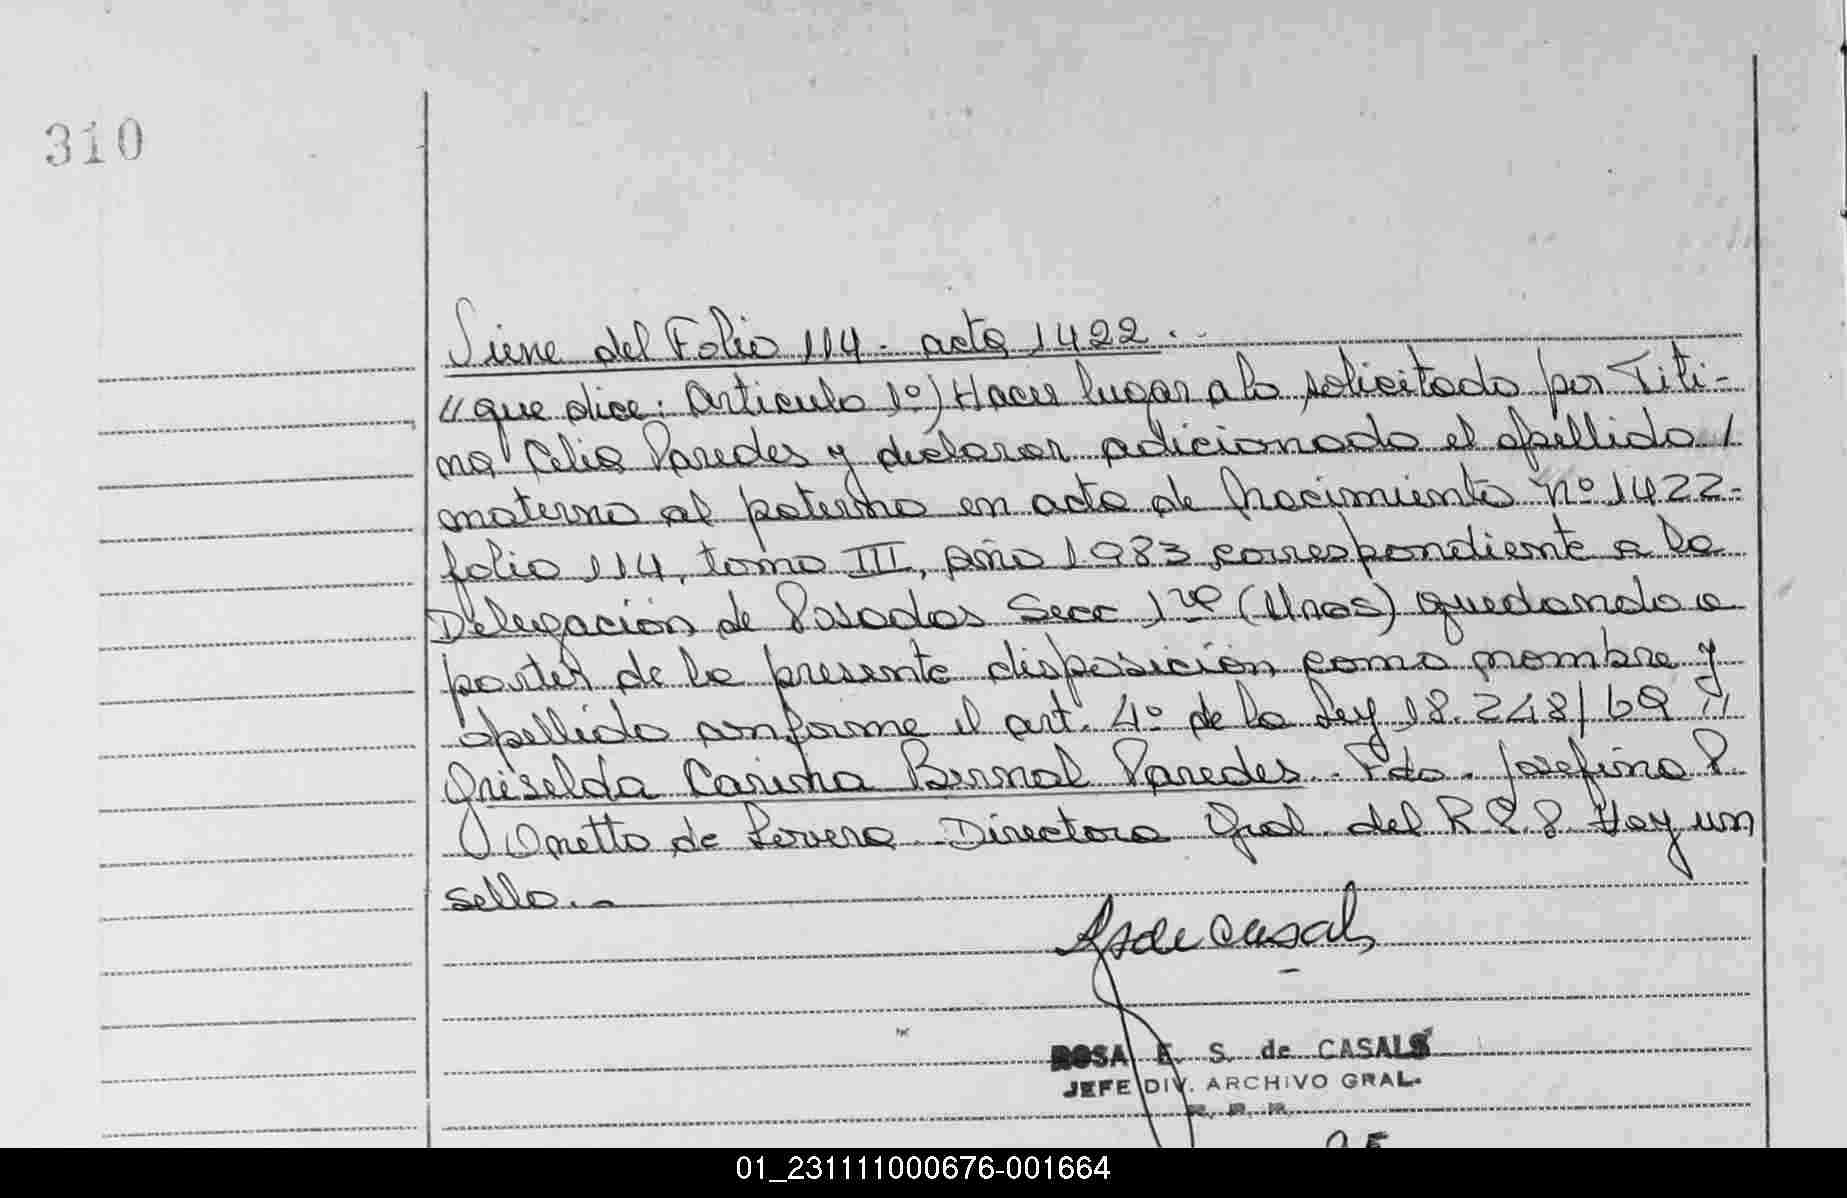 310
Viene del Folio 114. acta 1422.-
"que dice: Articulo 1º) Hacer lugar a lo solicitado por Titi-
na Celia Paredes y declarar adicionado el apellido /
materno al paterno en acta de Nacimiento Nº 1422-
folio 114, tomo III, año 1983 correspondiente a la
Delegación de Posadas Secc 1ra (Unos) quedando a
partir de la presente disposición como nombre y
apellido conforme el art. 4º de la Ley 18.248/69 "
Griselda Carina Bernal Paredes. Fdo. Josefina P.
Onetto de Lovera Directora Gral. del R P P Hay un
sello.-
Rs de Casals
ROSA E. S. de CASALS
JEFE DIV. ARCHIVO GRAL.
01_231111000676-001664